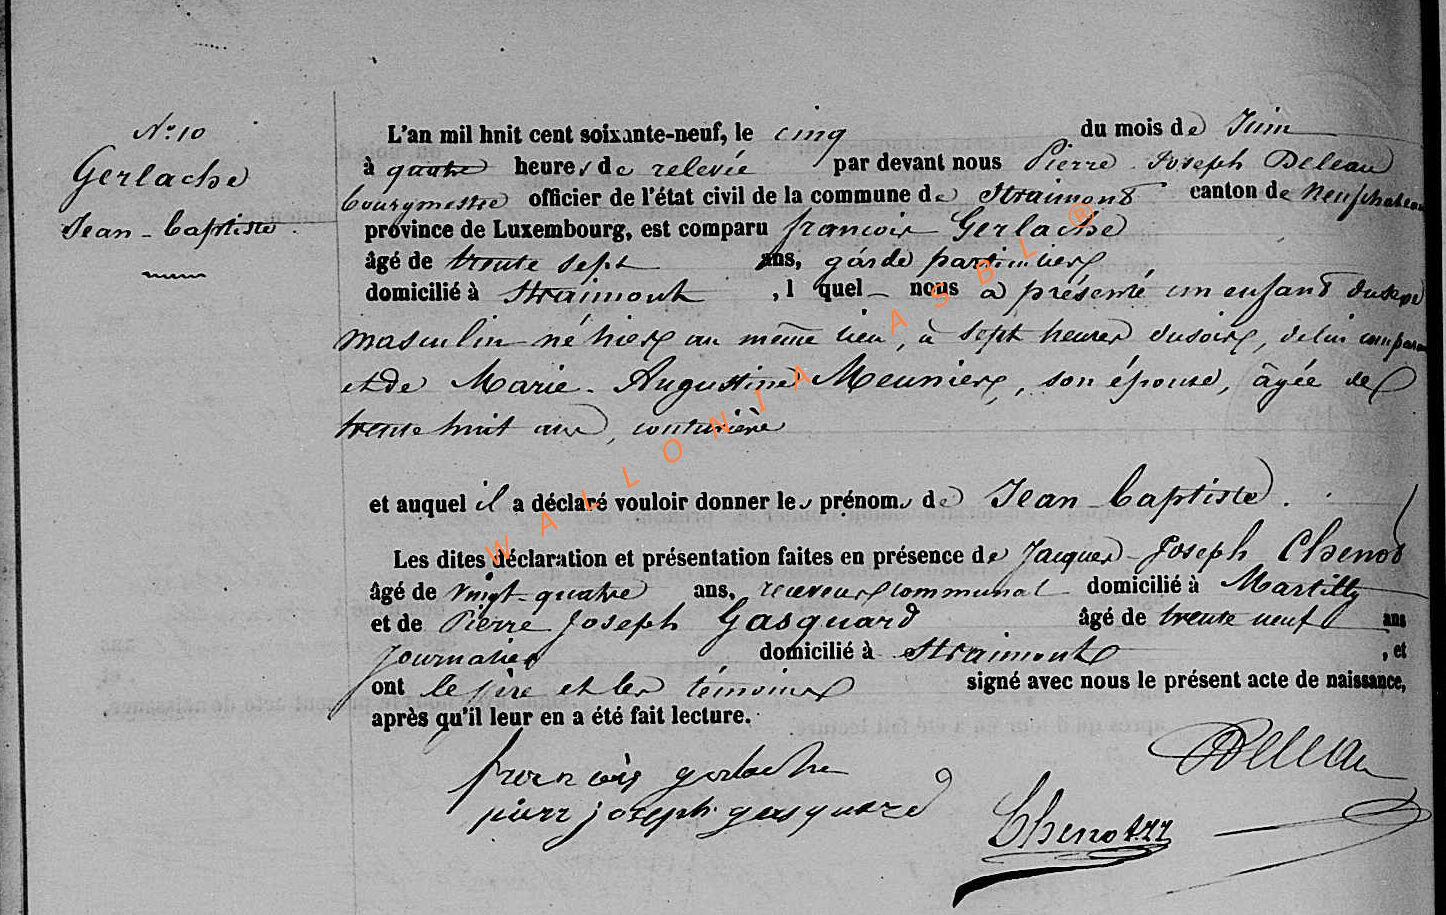 N° 10
Gerlache
Jean-Baptiste.
L'an mil huit cent soixante-neuf, le cinq du mois de Juin
à quatre heures de relevée par devant nous Pierre Joseph Deleau
bourgmestre officier de l'état civil de la commune de Straimont canton de Neufchateau
province de Luxembourg, est comparu francois Gerlache
âgé de trente sept ans, garde particulier
domicilié à Straimont, l quel nous a présenté un enfant du sexe
masculin né hier au même lieu, à sept heures du soir, de lui comparant
et de Marie-Augustine Meunier, son épouse, âgée de
trente huit ans, couturière
et auquel il a déclaré vouloir donner les prénoms de Jean-Baptiste.
Les dites déclaration et présentation faites en présence de Jacques-Joseph Chenot
âgé de vingt-quatre ans, receveur communal domicilié à Martilly
et de Pierre Joseph Gasquard âgé de trente neuf ans
Journalier domicilié à Straimont, et
ont le père et les témoins signé avec nous le présent acte de naissance,
après qu'il leur en a été fait lecture.
francois gerlache
pierr joseph gasquard
Deleau
Chenot
WALLONIA ASBL ®